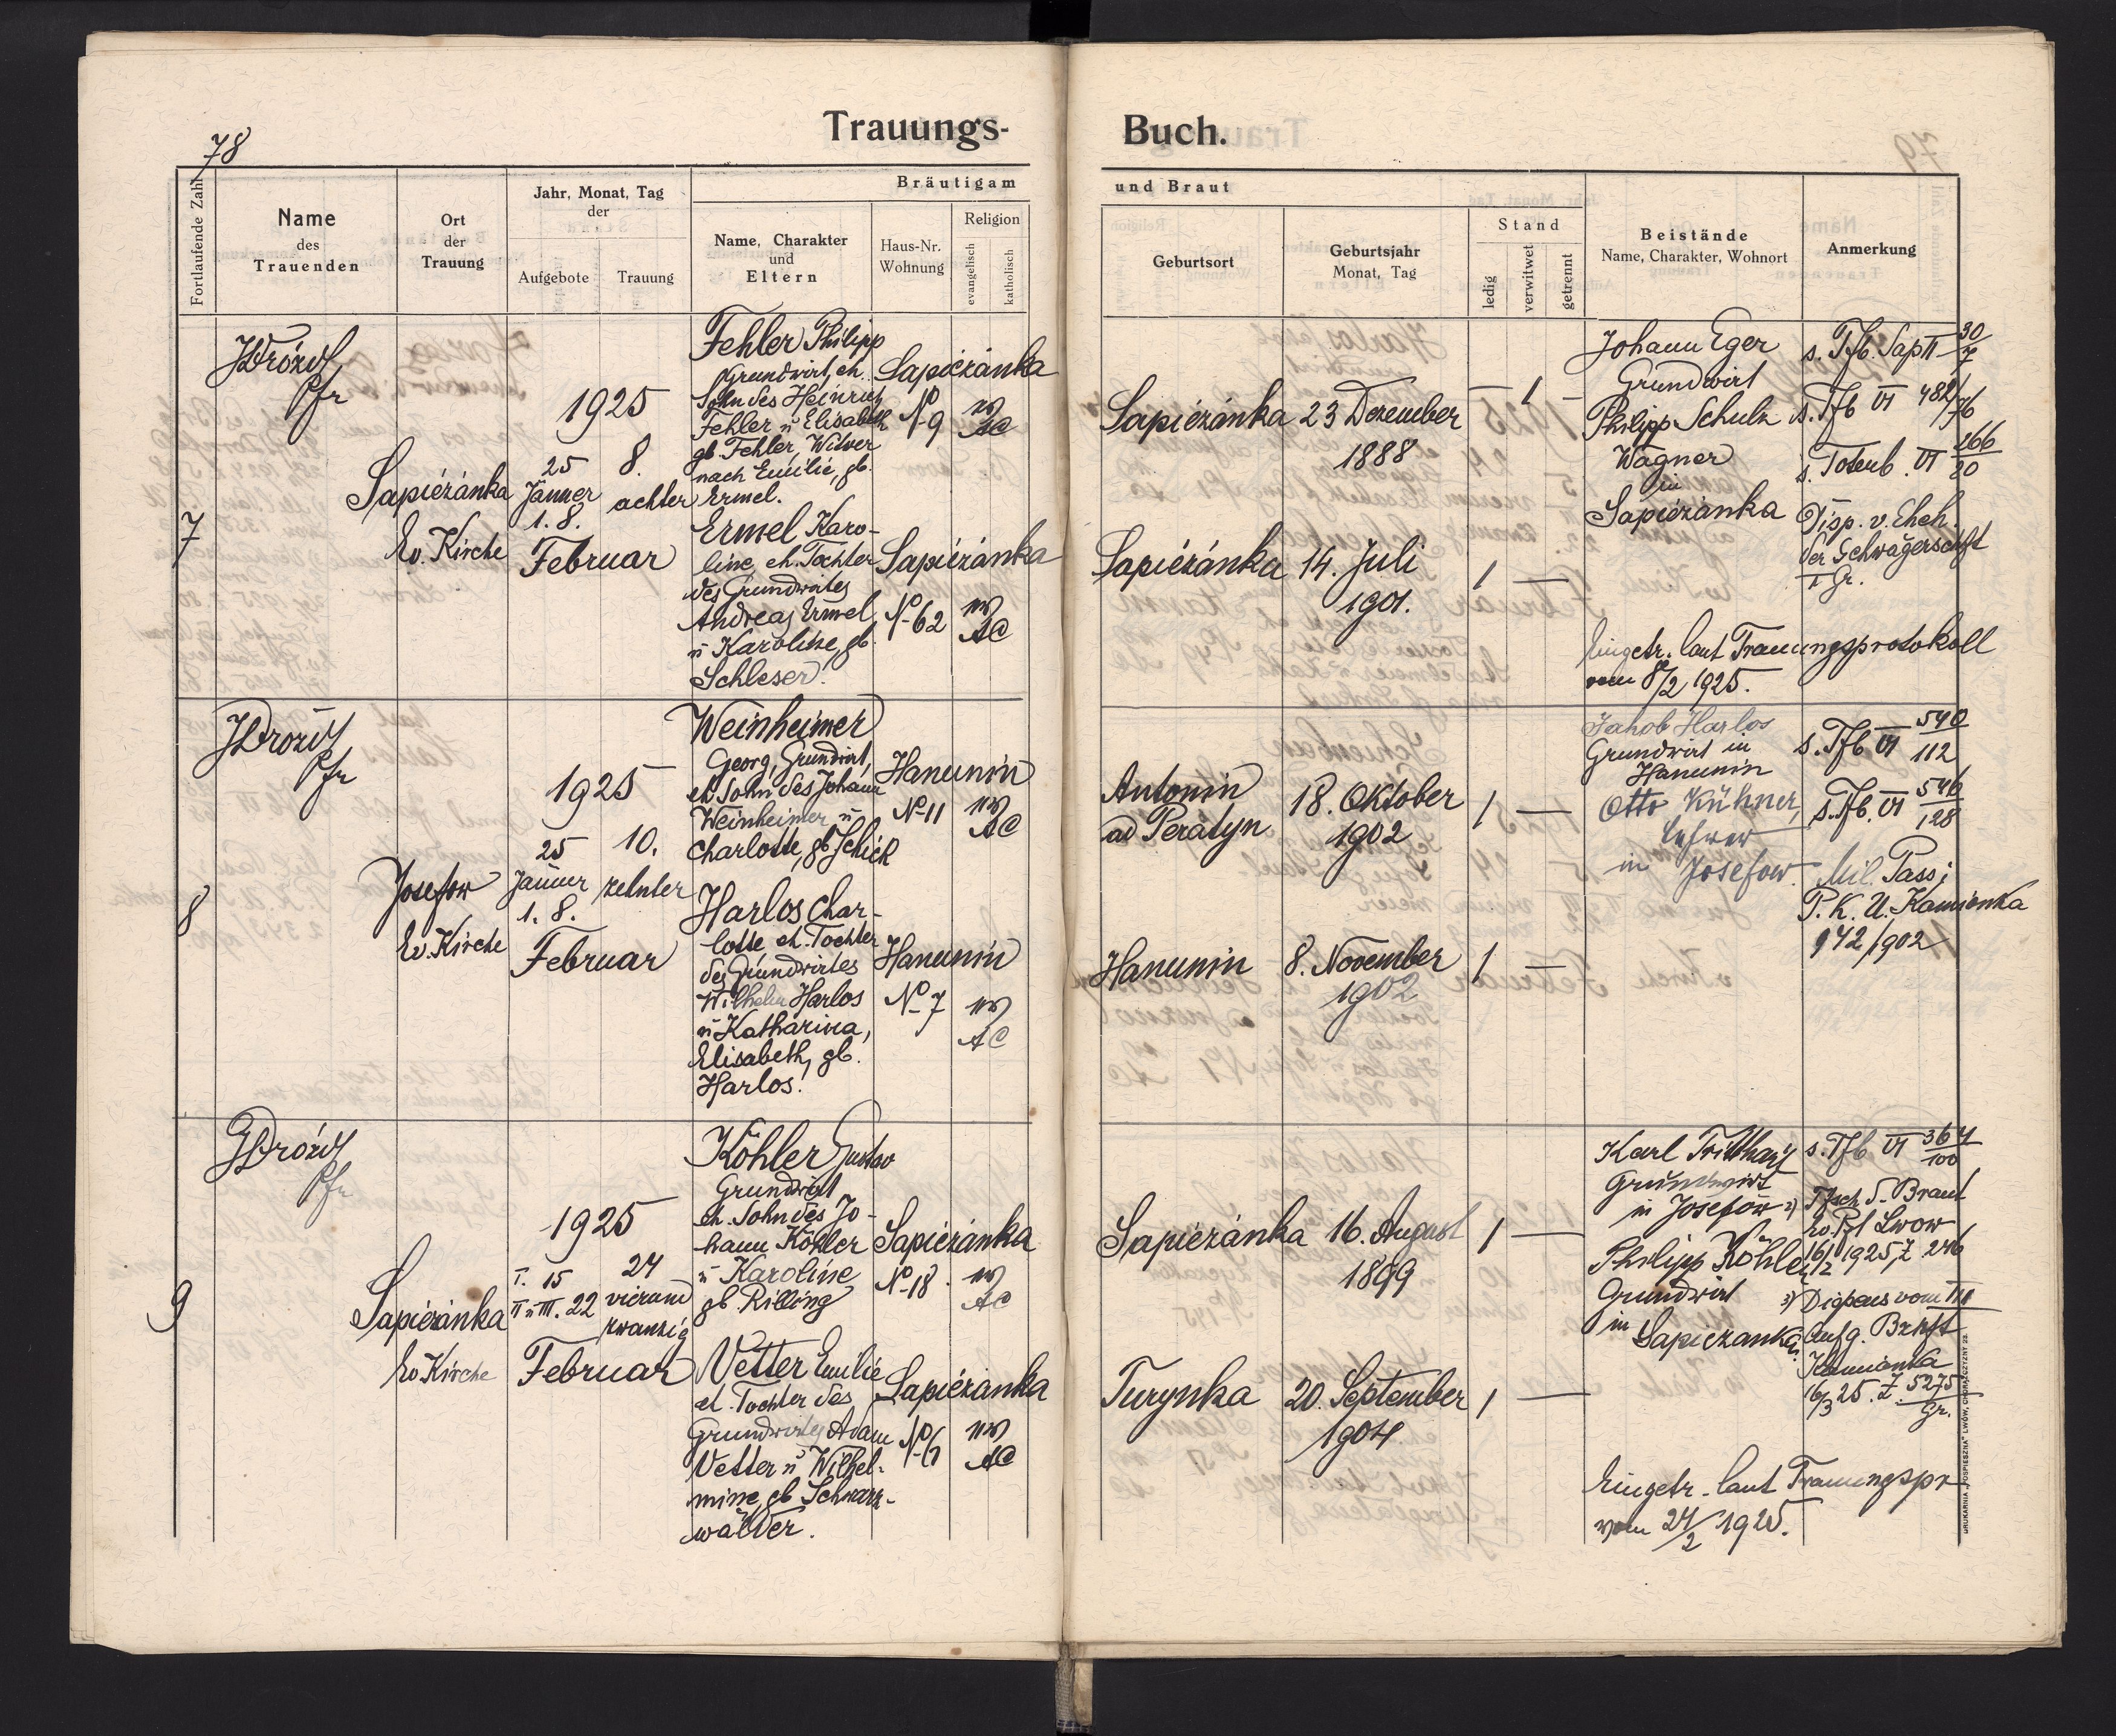 78
Trauungs-
Fortlaufende Zahl
Name
des
Trauenden
Ort
der
Trauung
Jahr, Monat, Tag
der
Aufgebote
Trauung
Bräutigam
Name, Charakter
und
Eltern
Haus-Nr.
Wohnung
Religion
evangelisch
katholisch
Buch.
und Braut
Geburtsort
Geburtsjahr
Monat, Tag
Stand
ledig
verwitwet
getrennt
Beistände
Name, Charakter, Wohnort
Anmerkung
7
JDrózd
Pfr
Sapiéżánka
Ev. Kirche
1925
25 8.
Jänner achter
1. 8.
Februar
Fehler Philipp
Grundwirt, eh.
Sohn des Heinrich
Fehler u Elisabeth
gb. Fehler, Witwer
nach Emilie, gb.
Ermel.
Sapiéżánka
No 9
AC
Ermel Karo-
line, eh. Tochter
des Grundwirtes
Andreas Ermel
u Karoline, gb.
Schleser.
Sapiéżánka
No 62
AC
Sapiéżánka
23 Dezember
1888
1
Sapiéżánka
14. Juli
1901.
1
Johann Eger
Grundwirt
Philipp Schulz
Wagner
in
Sapiéżánka
s. Tfb. Sap II 30/7
s. Tfb VI 482/76
s. Totenb. VI 266/20
Disp. v. Eheh.
der Schwägerschaft
I Gr.
Eingetr. laut Trauungsprotokoll
vom 8/2 1925.
8
JDrózd
Pfr
Josefow
Ev. Kirche
1925
25 10.
Jänner zehnter
1. 8.
Februar
Weinheimer
Georg, Grundwirt,
eh Sohn des Johann
Weinheimer u
Charlotte, gb Schick
Hanunin
No 11
AC
Harlos Char-
lotte, eh. Tochter
des Grundwirtes
Wilhelm Harlos
u Katharina,
Elisabeth, gb.
Harlos.
Hanunin
No 7
AC
Antonin
ad Peratyn
18. Oktober
1902
1
Hanunin
8. November
1902
1
Jakob Harlos
Grundwirt in
Hanunin
Otto Kühner,
Lehrer
in Josefow.
s. Tfb VI 540/112
s. Tfb. VI 546/128
Mil. Pass:
P.K.U. Kamionka
942/902
9
JDrózd
Pfr
Sapiéżánka
Ev Kirche
1925
I. 15 24
II u III. 22 vierund
zwanzig
Februar
Köhler Gustav
Grundwirt
eh. Sohn des Jo-
hann Köhler
u Karoline
gb. Rilling
Sapiéżánka
No 18
AC
Vetter Emilie
eh. Tochter des
Grundwirtes Adam
Vetter u Wilhel-
mine, gb Schwarz-
wälder.
Sapiéżanka
No 6
AC
Sapiéżánka
16. August
1899
1
Turynka
20. September
1904.
1
Karl Tritthart
Grundwirt
in Josefow
Philipp Köhler
Grundwirt
in Sapiezanka.
s. Tfb VI 364/100
2) Tfsch d. Braut
Ev. Pf Lwow
16/2 1925 Z 246
3) Dispens vom III
Aufg. Bzhft
Kamionka
16/3 25. Z. 5275/Gr.
Eingetr. laut Trauungspr
vom 24/2 1925.
DRUKARNIA „POSPIESZNA" LWÓW, CHORĄŻCZYZNY 23.